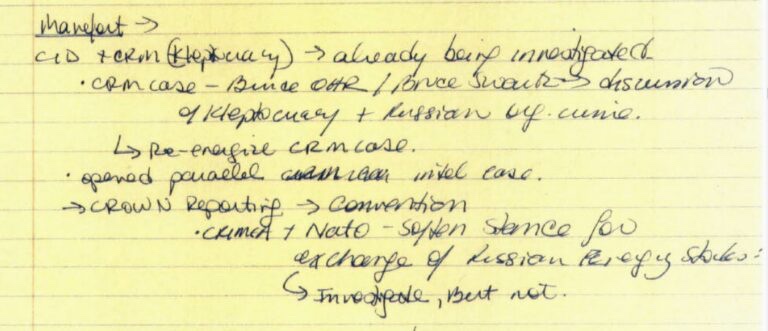 Manafort →
CD + CRM (Kleptocracy) → already being investigated.
· CRM case – Bruce OHR / Bruce Swartz → discussion
of Kleptocracy + Russian org. crime.
↳ Re-energize CRM case.
· opened parallel intel case.
→ CROWN Reporting → Convention
· CRIMEA + Nato – Soften Stance for
exchange of Russian Energy Stocks.
↳ Investigate, But not.